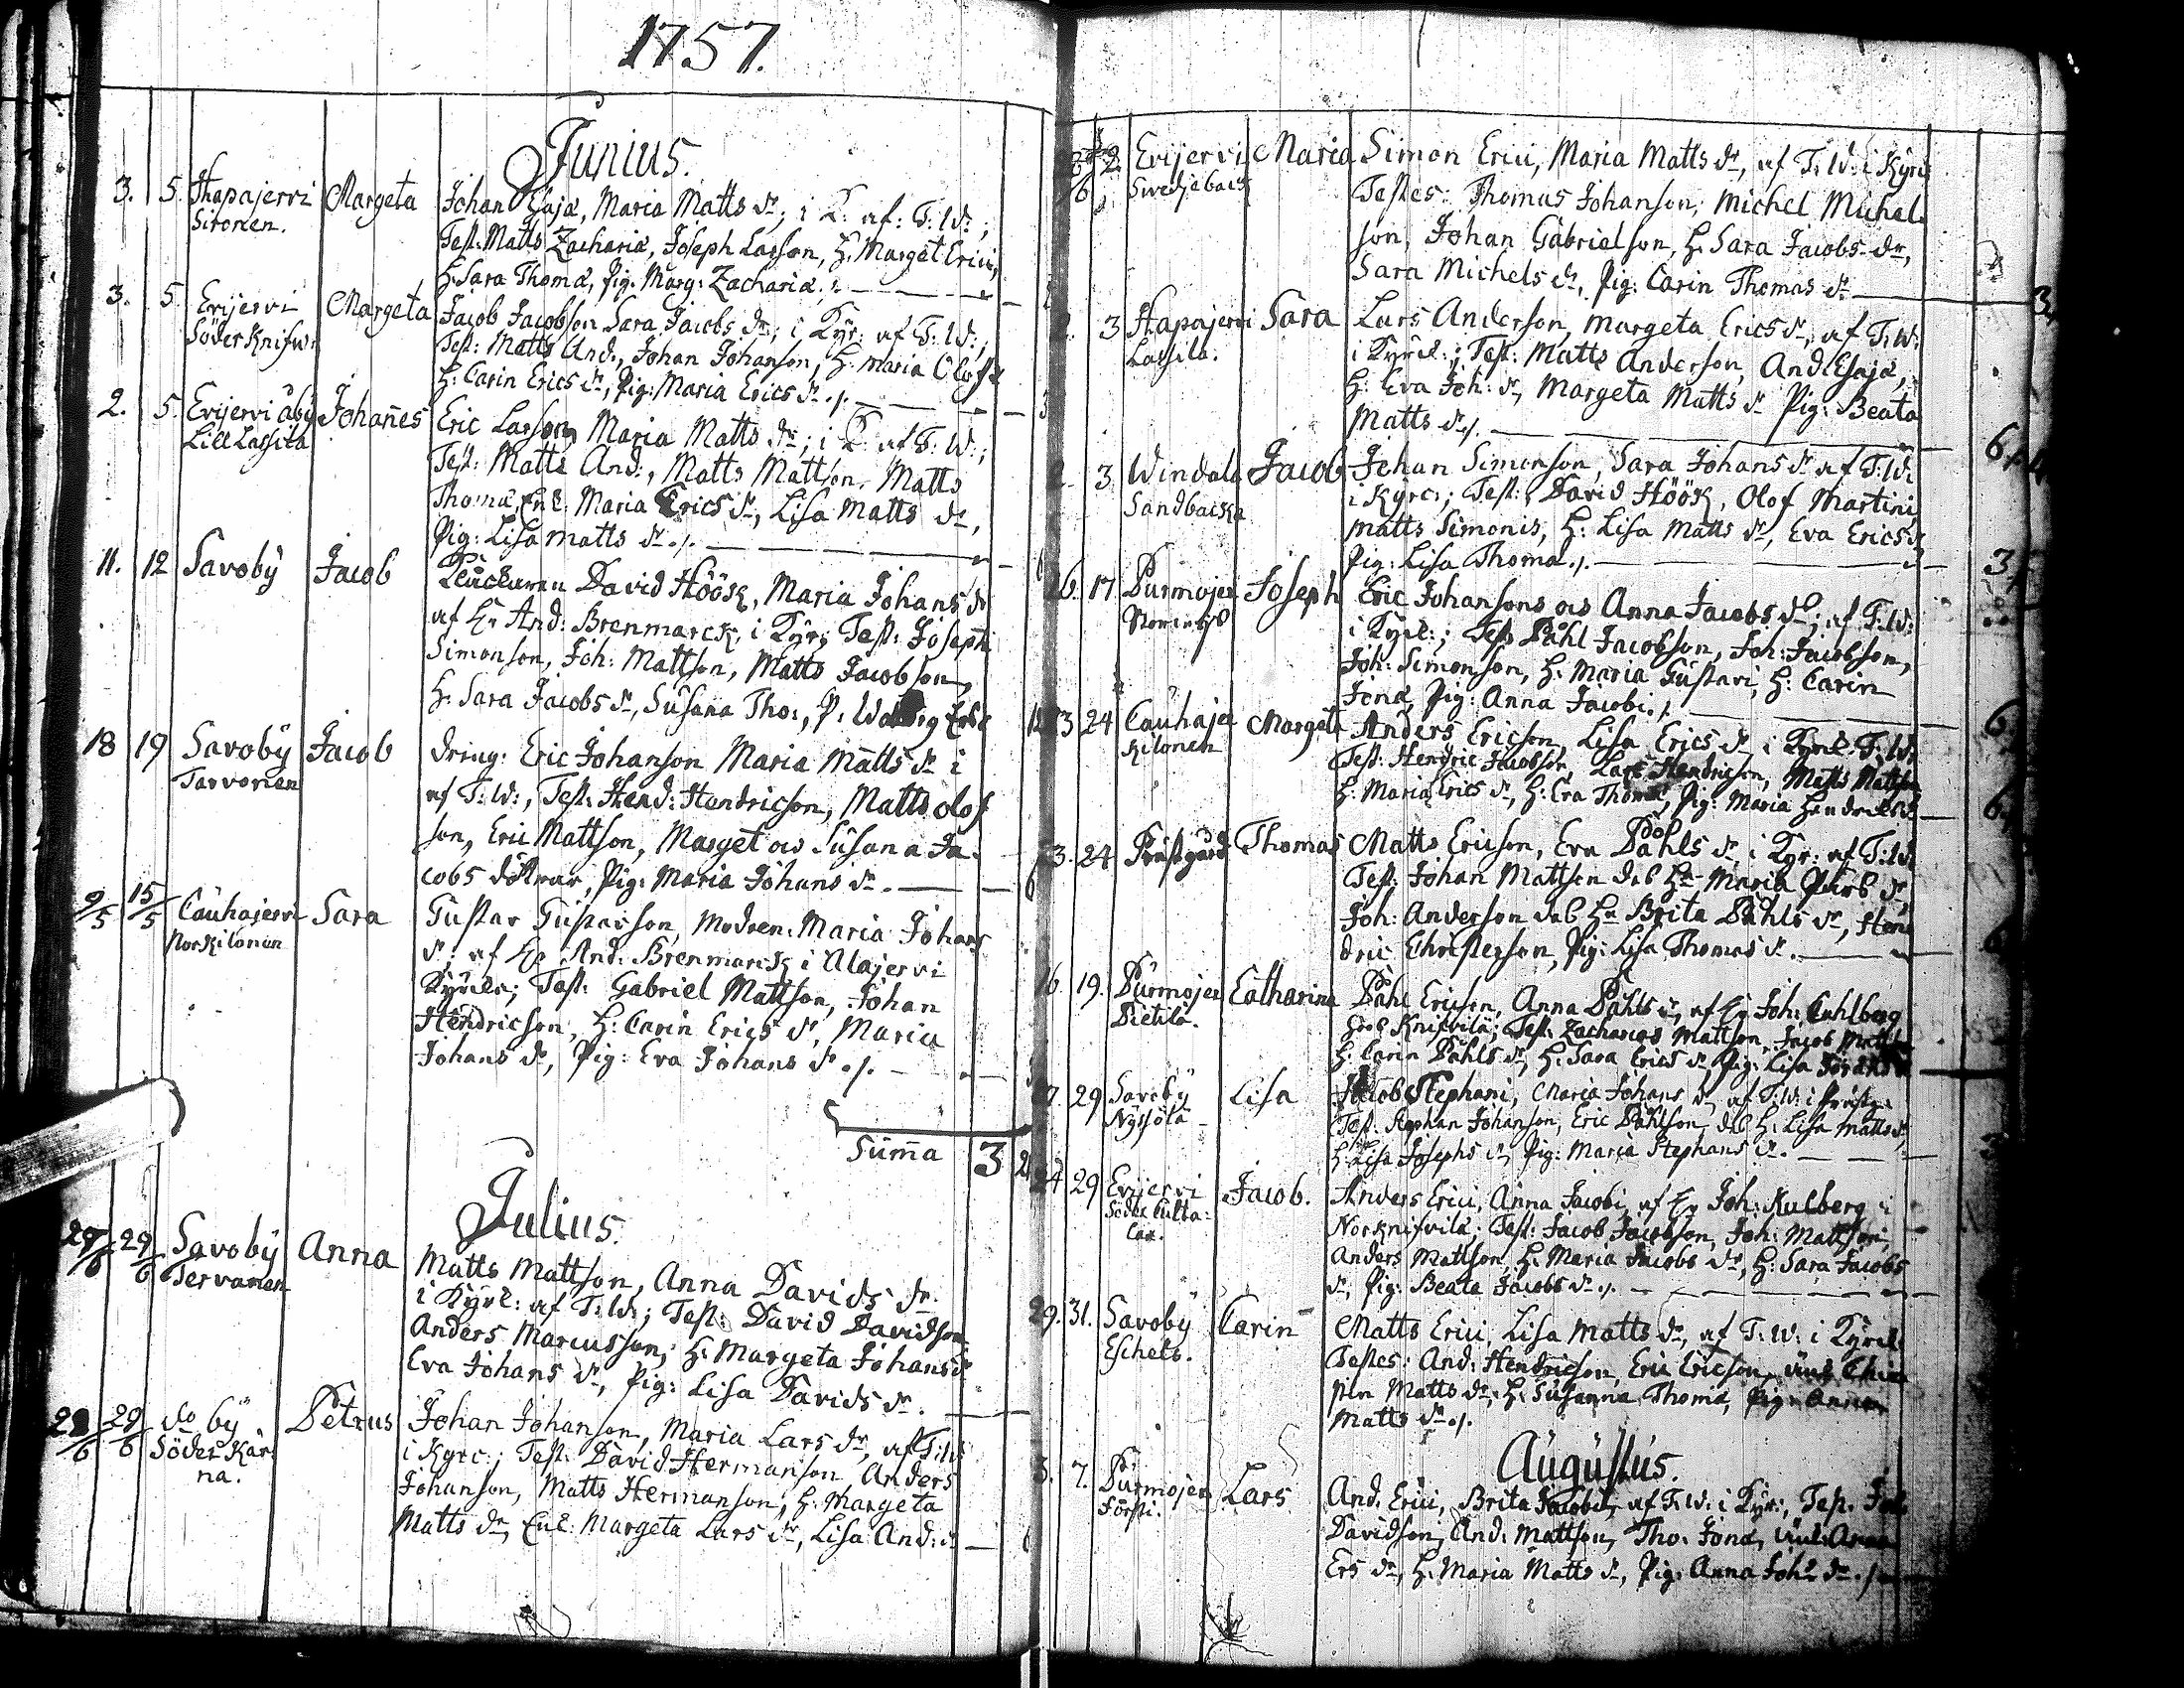 1757.
Junius.
3. 5. Hapajervi Margeta Johan Esaiæ, Maria Matts dr; i K: af: T: W:;
Sironen. Test: Matts Zachariæ, Joseph Larson, H. Marget Erici,
H. Sara Thomæ, Pig. Marg: Zachariæ.
3. 5. Evijervi Margeta Jacob Jacobson Sara Jacobs dr; i Kyr: af T: W:;
Söder Knifw: Test: Matts And:, Johan Johanson, H. Maria Olofs
H: Carin Erics dr, Pig: Maria Erics dr ./.
2. 5. Evijervi åby Johañes Eric Larson, Maria Matts dr; i K: af T: W:;
Lill Lassila Test: Matts And:, Matts Mattson, Matts
Thomæ, Enk: Maria Erics dr, Lisa Matts dr,
Pig: Lisa matts dr ./.
11. 12 Savoby Jacob Klåckaren David Höök, Maria Johans dr
af Hr And: Brenmarck, i Kyr; Test: Joseph
Simonson, Joh: Mattson, Matts Jacobson,
H. Sara Jacobs dr, Susana Tho:, P:
18 19 Savoby Jacob dräng: Eric Johanson Maria Matts dr i
Tarvonen af T: W:, Test: Hend: Hendricson, Matts Olof
son, Eric Mattson, Marget och Susana Ja-
cobs döttrar, Pig: Maria Johans dr.
9/5 15/5 Cauhajervi Sara Gustav Gustavson, Modren: Maria Johans
Norkilonen dr; af Hr And: Brenmarck i Alajervi
Kyrka; Test: Gabriel Mattson, Johan
Hendricson, H: Carin Erics dr, Maria
Johans dr, Pig: Eva Johans dr ./.
Sum̃a 3
Julius.
29/6 Savoby Anna Matts Mattson, Anna Davids dr
Tervanen i Kyrk: af T: W:; Test: David Davidson
Anders Marcusson; H: Margeta Johans dr
Eva Johans dr, Pig: Lisa Davids dr.
29/6 do by Petrus Johan Johanson, Maria Lars dr, af T: W:
Söder Kär- i Kyrc:; Test: David Hermanson Anders
na. Johanson, Matts Hermanson, H: Margeta
Matts dr, Enk: Margeta Lars dr, Lisa And: dr
2 Evijervi Maria Simon Erici, Maria Matts dr, af T: W: i Kyrk
Svedjeback Testes: Thomas Johanson, Michel Michel
son, Johan Gabrielson, H. Sara Jacobs dr,
Sara Michels dr, Pig: Carin Thomas dr
3 Hapajervi Sara Lars Anderson, Margeta Erics dr, af T: W:
Lassila. i Kyrk:; Test: Matts Anderson, And Esaiæ,
H: Eva Joh: dr, Margeta Matts dr Pig: Beata
Matts dr ./.
3 Windala Jacob Johan Simonson, Sara Johans dr af T: W:
Sandbacka i Kyrc:; Test: David Höök, Olof Martini
Matts Simonis, H: Lisa Matts dr, Eva Erics dr
Pig: Lisa Thomæ ./.
16. 17 Purmojer Joseph Eric Johansons och Anna Jacobs dr; af T: W:
i Kyrk:; Test: Påhl Jacobson, Joh: Jacobson,
Joh: Simonson, H. Maria Gustavi, H: Carin
Jonæ, Pig: Anna Jacobi ./.
23 24 Cauhajer Marget Anders Ericson, Lisa Erics dr i Kyrk. T: W:
Kilonen Test: Hendric Jacobson, Lars Hendricson, Matts Mattson
H: Maria Erics dr, H: Eva Thomæ, Pig: Maria Hendrics dr
23. 24 Prästgård Thomas Matts Ericson, Eva Påhls dr, i Kyr: af T: W:
Test: Johan Mattson dess Hu Maria dr,
Joh: Anderson dess Hu Brita Påhls dr, Hen
dric Christerson, Pig: Lisa Thomas dr.
16. 19. Purmojer Catharina Påhl Ericson, Anna Påhls dr, af Hr Joh: Cahlberg
Pietila. hos Knifvilä; Test: Zacharias Mattson, Jacob Matts
H: Carin Påhls dr, H: Sara Erics dr Pig: Lisa
29 Savoby Lisa Jacob Stephani, Maria Johans dr, af T: W: i
Nysola Test: Stephan Johanson, Eric Påhlson, dess H: Lisa Matts dr,
H: Lisa Josephs dr, Pig: Maria Stephans dr.
24 29 Evijervi Jacob. Anders Erici, Anna Jacobi, af Hr Joh: Kulberg i
Söder Norknifvilä; Test: Jacob Jacobson, Joh: Mattson,
Anders Mattson, H. Maria Jacobs dr, H: Sara Jacobs
dr, Pig: Beata Jacobs dr ./.
29. 31. Savoby Carin Matts Erici, Lisa Matts dr, af T: W: i Kyrk
Eskels. Testes: And: Hendricson, Eric Ericson,
Matts dr, H: Susanna Thomæ, Pig: Anna
Matts dr ./.
Augustus.
7. Purmojer Lars And: Erici, Brita Jacobi, af T: W: i Kyr:, Test:
Försti. Davidson, And: Mattson, Tho: Jonæ,
Ers dr, H. Maria Matts dr, Pig: Anna Joh: dr ./.